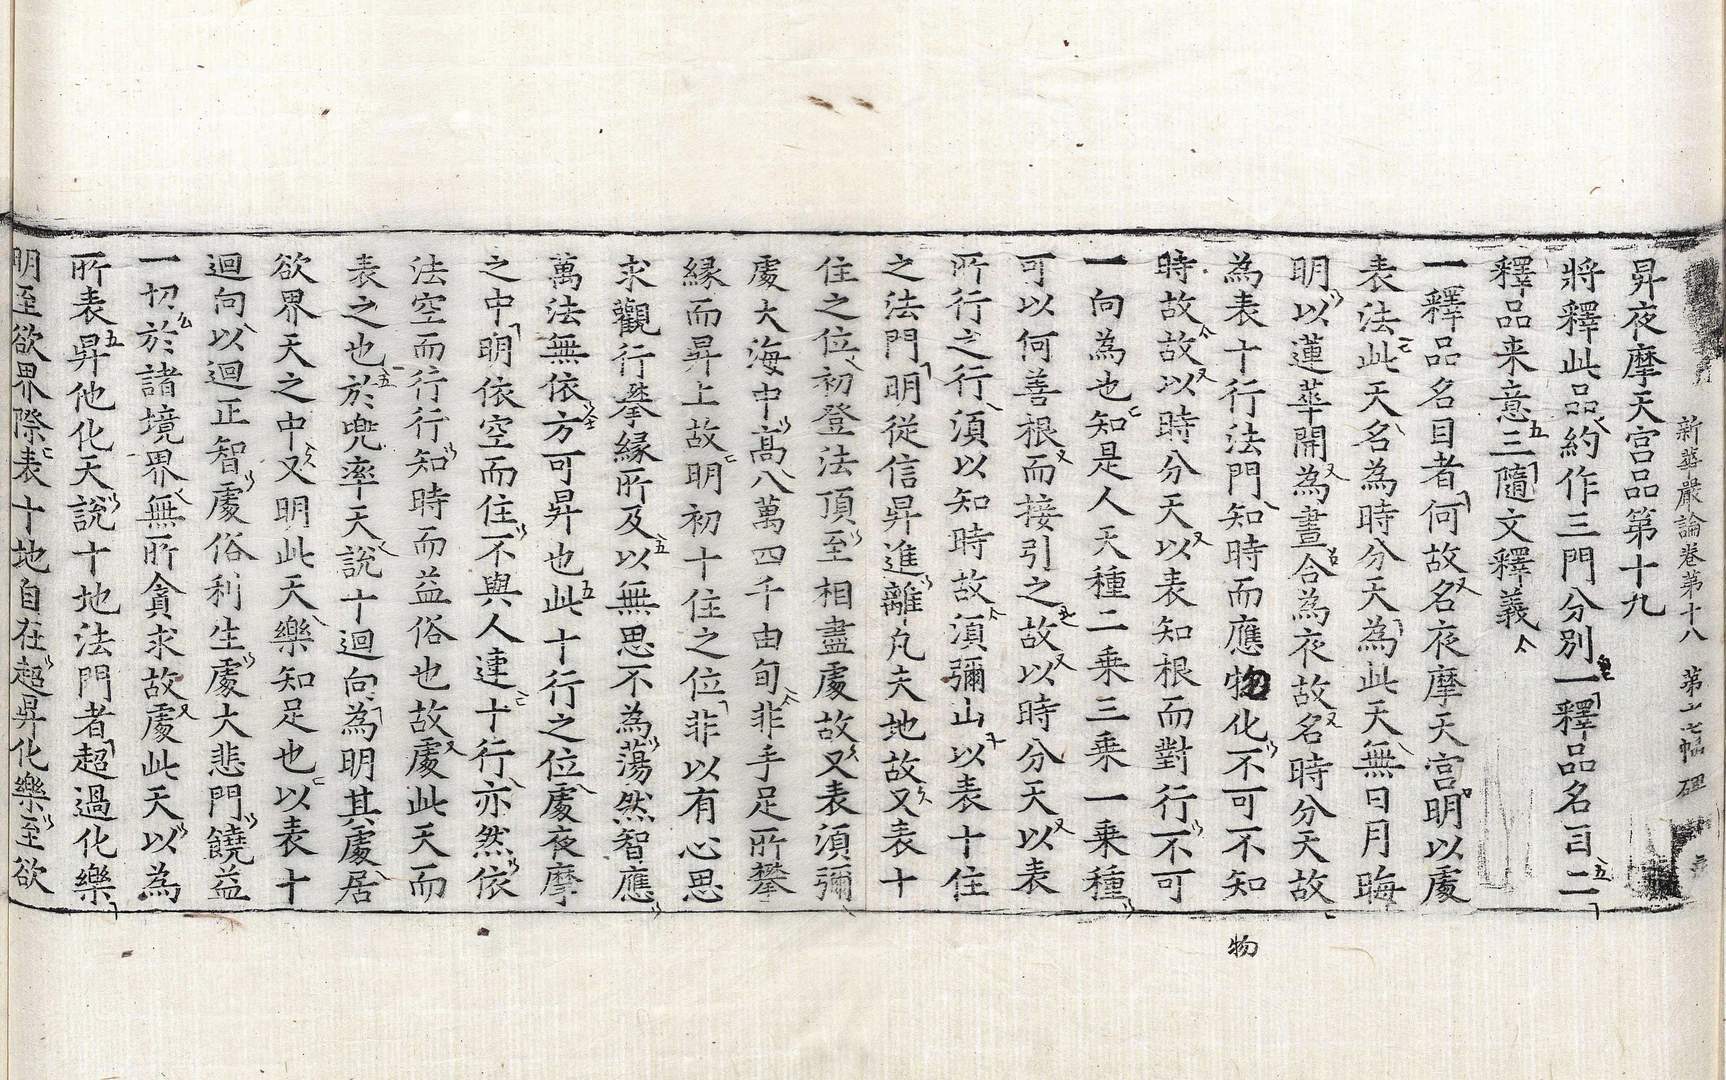 新華嚴論卷第十八　第十七幅　碑
昇夜摩天宮品第十九
將釋此品約作三門分別一釋品名目二
釋品来意三隨文釋義
一釋品名目者何故名夜摩天宮明以處
表法此天名為時分天為此天無日月晦
明以蓮華開為晝合為夜故名時分天故
為表十行法門知時而應物化不可不知
時故故以時分天以表知根而對行不可
一向為也知是人天種二乘三乘一乘種
可以何善根而接引之故以時分天以表
所行之行湏以知時故湏彌山以表十住
之法門明從信昇進離凡夫地故又表十
住之位初登法頂至相盡處故又表湏彌
處大海中髙八萬四千由旬非手足所攀
緣而昇上故明初十住之位非以有心思
求觀行攀緣所及以無思不為蕩然智應
萬法無依方可昇也此十行之位處夜摩
之中明依空而住不與人連十行亦然依
法空而行行知時而益俗也故處此天而
表之也於兜率天說十迴向為明其處居
欲界天之中又明此天樂知足也以表十
迴向以迴正智處俗利生處大悲門饒益
一切於諸境界無所貪求故處此天以為
所表昇他化天說十地法門者超過化樂
明至欲界際表十地自在超昇化樂至欲
物